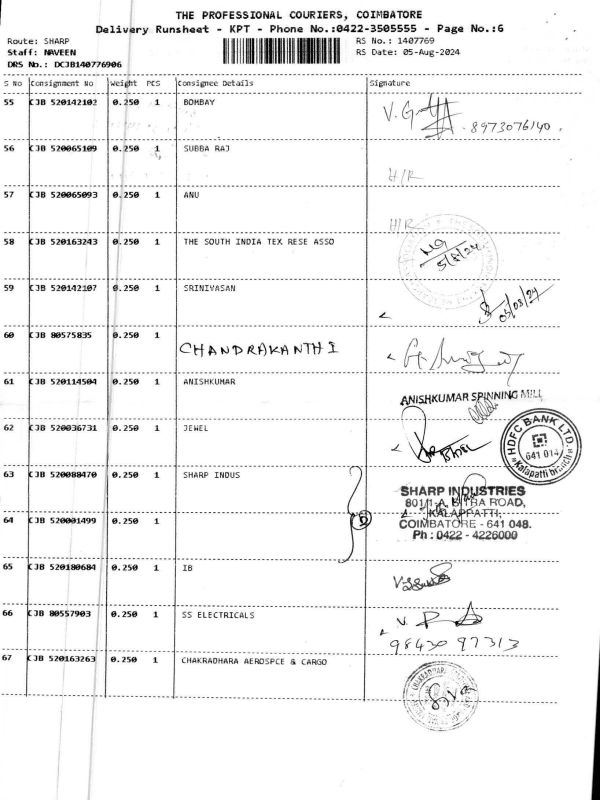 THE PROFESSIONAL COURIERS, COIMBATORE
Delivery Runsheet - KPT - Phone No.:0422-3505555 - Page No.:6
Route: SHARP
RS No.: 1407769
Staff: NAVEEN
RS Date: 05-Aug-2024
DRS No.: DCJB140776906
S No Consignment No Weight PCS Consignee Details Signature
55 CJB 520142102 0.250 1 BOMBAY
8973076140
56 CJB 520065109 0.250 1 SUBBA RAJ H/R
57 CJB 520065093 0.250 1 ANU H/R
58 CJB 520163243 0.250 1 THE SOUTH INDIA TEX RESE ASSO
5/8/24
59 CJB 520142107 0.250 1 SRINIVASAN
05/08/24
60 CJB 80575835 0.250 1 CHANDRAKANTHI
61 CJB 520114504 0.250 1 ANISHKUMAR
ANISHKUMAR SPINNING MILL
62 CJB 520036731 0.250 1 JEWEL
HDFC BANK LTD.
641 014
Kalapatti branch
63 CJB 520088470 0.250 1 SHARP INDUS
SHARP INDUSTRIES
801/1-A, BITRA ROAD,
KALAPPATTI,
64 CJB 520001499 0.250 1
COIMBATORE - 641 048.
Ph : 0422 - 4226000
65 CJB 520180684 0.250 1 IB
66 CJB 80557903 0.250 1 SS ELECTRICALS
98430 97313
67 CJB 520163263 0.250 1 CHAKRADHARA AEROSPCE & CARGO